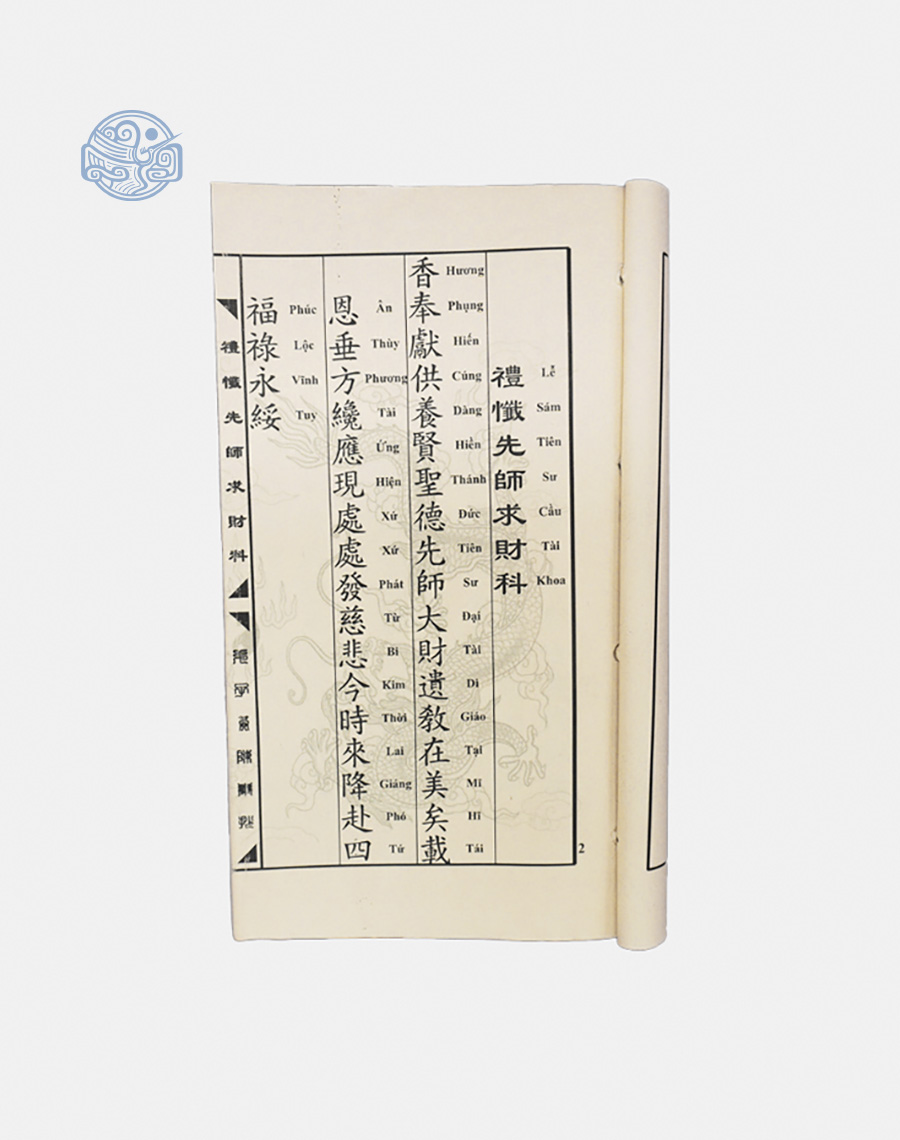 禮懺先師求財科
Lễ Sám Tiên Sư Cầu Tài Khoa
香奉獻供養賢聖德先師大財遺教在美矣載
Hương Phụng Hiến Cúng Dàng Hiền Thánh Đức Tiên Sư Đại Tài Di Giáo Tại Mĩ Hĩ Tái
恩垂方纔應現處處發慈悲今時來降赴四
Ân Thùy Phương Tài Ứng Hiện Xứ Xứ Phát Từ Bi Kim Thời Lai Giáng Phó Tứ
福祿永綏
Phúc Lộc Vĩnh Tuy
禮懺先師求財科
2